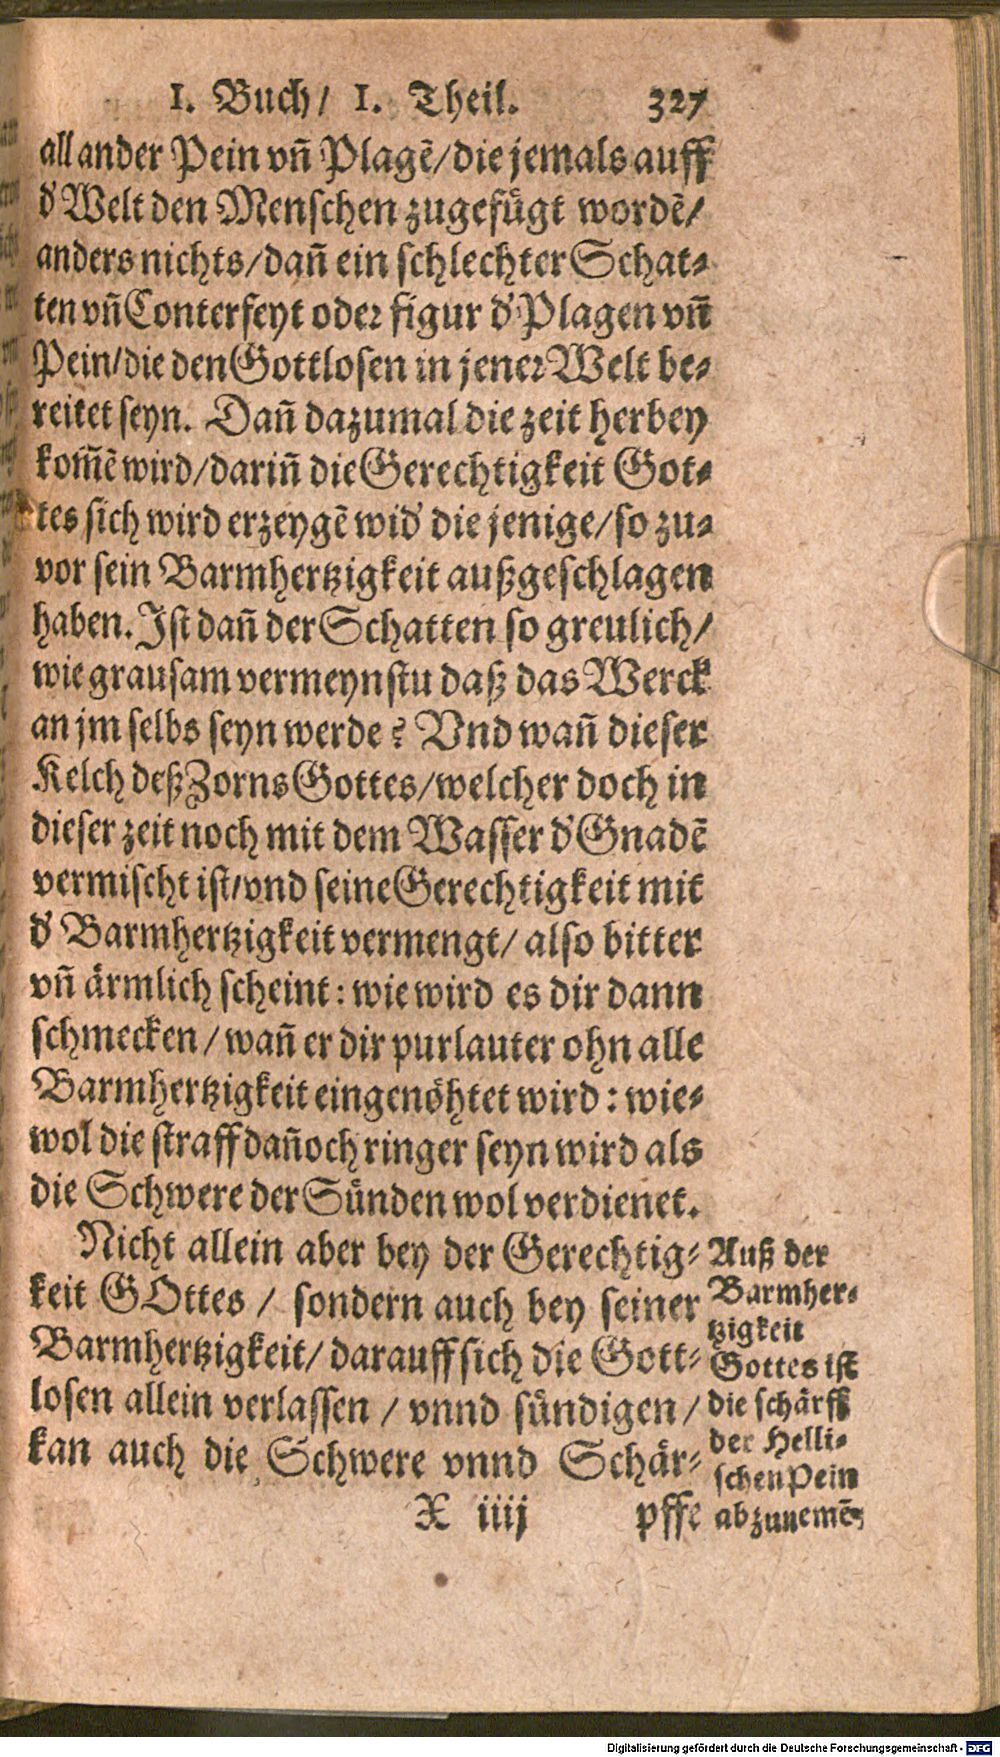 1. Buch/ 1. Theil. 327
all ander Pein vn̄ Plagē/die jemals auff
d' Welt den Menschen zugefügt wordē/
anders nichts/dan̄ ein schlechter Schat-
ten vn̄ Conterfeyt oder figur d' Plagen vn̄
Pein/die den Gottlosen in jener Welt be-
reitet seyn. Dan̄ dazumal die zeit herbey
kom̄ē wird/darin̄ die Gerechtigkeit Got-
tes sich wird erzeygē wid' die jenige/so zu-
vor sein Barmhertzigkeit außgeschlagen
haben. Ist dan̄ der Schatten so greulich/
wie grausam vermeynstu daß das Werck
an jm selbs seyn werde? Vnd wan̄ dieser
Kelch deß Zorns Gottes/welcher doch in
dieser zeit noch mit dem Wasser d' Gnadē
vermischt ist/vnd seine Gerechtigkeit mit
d' Barmhertzigkeit vermengt/ also bitter
vn̄ ärmlich scheint: wie wird es dir dann
schmecken/wan̄ er dir purlauter ohn alle
Barmhertzigkeit eingenöhtet wird: wie-
wol die straff dan̄och ringer seyn wird als
die Schwere der Sünden wol verdienet.
Nicht allein aber bey der Gerechtig-
keit GOttes / sondern auch bey seiner
Barmhertzigkeit/ darauff sich die Gott-
losen allein verlassen / vnnd sündigen/
kan auch die Schwere vnnd Schär-
X iiij pffe
Auß der
Barmher-
tzigkeit
Gottes ist
die schärff
der Helli-
schen Pein
abzunemē.
Digitalisierung gefördert durch die Deutsche Forschungsgemeinschaft - DFG